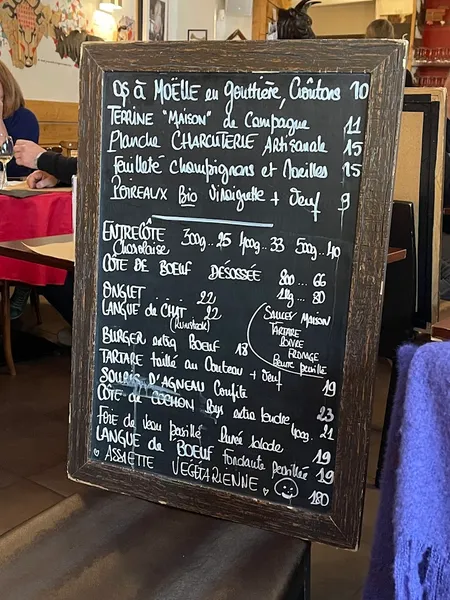 OS à MOËLLE en gouttière, Croûtons 10
TERRINE "MAISON" de Campagne 11
Planche CHARCUTERIE Artisanale 15
Feuilleté champignons et Morilles 15
POIREAUX Bio Vinaigrette + Oeuf 9
ENTRECÔTE 300g... 25 400g... 33 500g... 40
Charolaise
CÔTE DE BOEUF DÉSOSSÉE 800 ... 66
1kg... 80
ONGLET ... 22
LANGUE de CHAT 22
(Rumsteck)
SAUCES MAISON
TARTARE
POIVRE
FROMAGE
Beurre persillé
BURGER BOEUF 18
TARTARE taillé au Couteau + Oeuf 19
SOURIS D'AGNEAU Confite 23
CÔTE de COCHON extra tendre 400g. 21
Foie de Veau persillé Purée salade 19
LANGUE de BOEUF Fondante persillée 19
♡ ASSIETTE VÉGÉTARIENNE ♡ 180